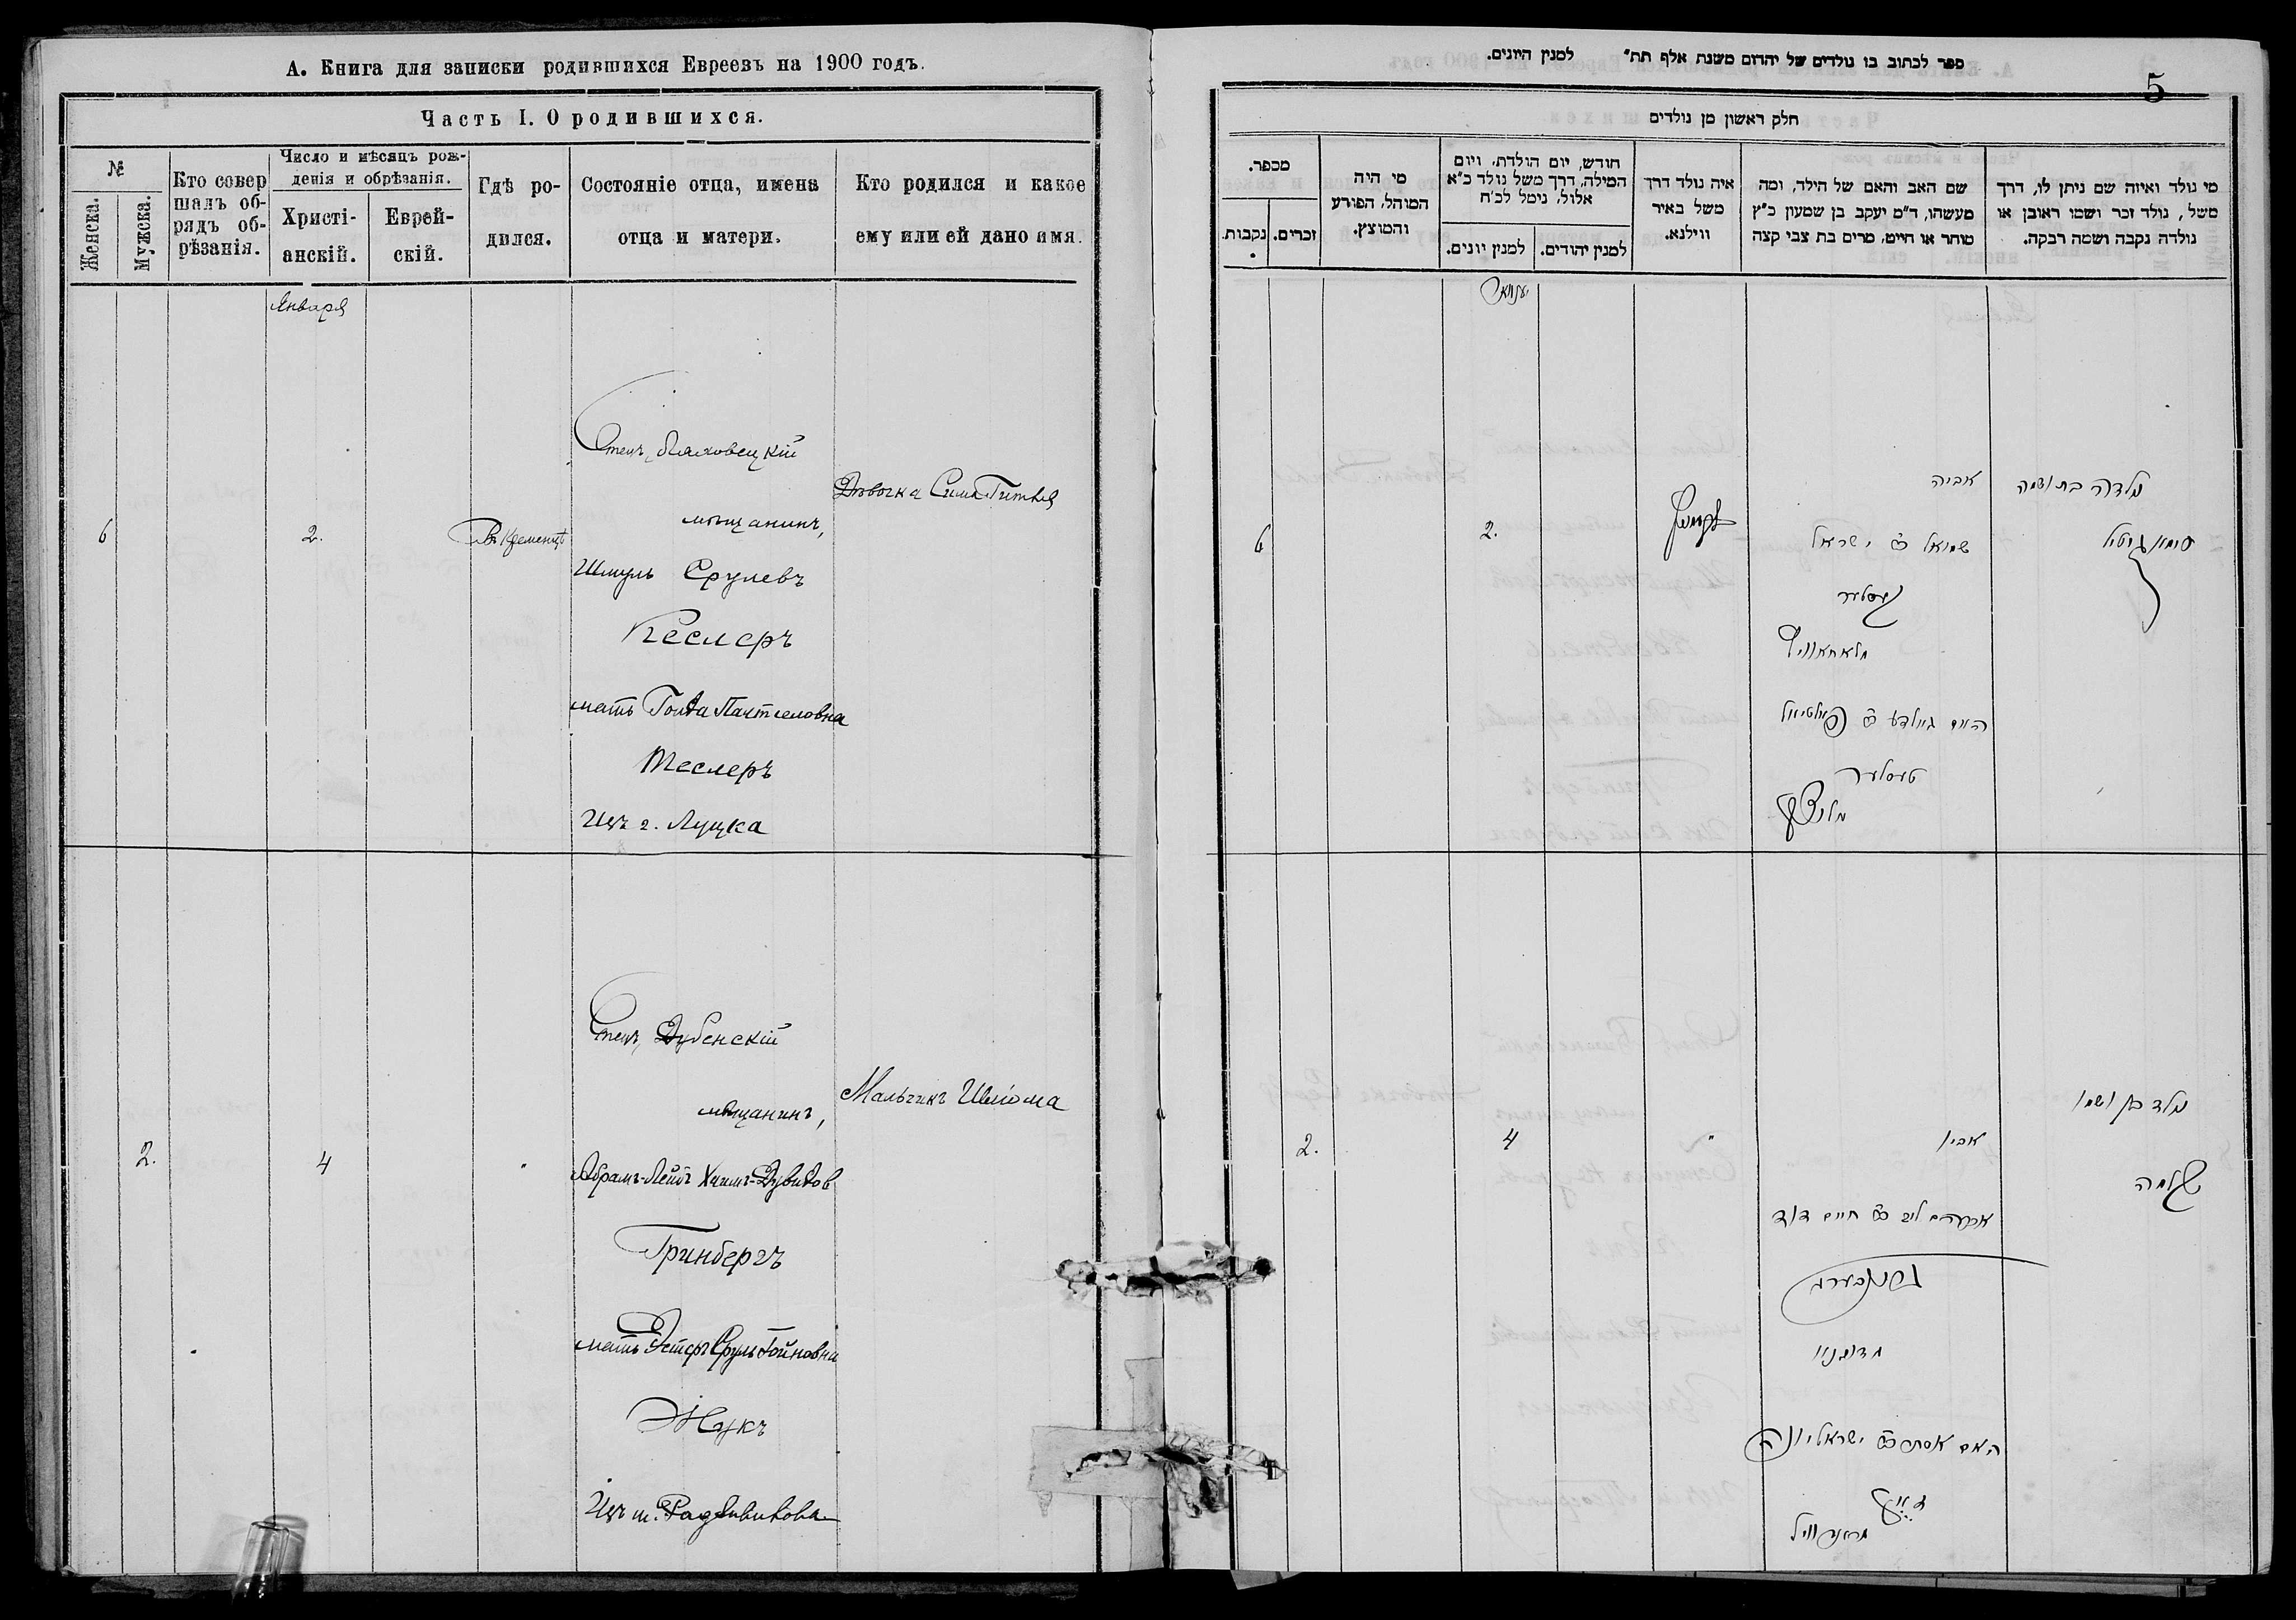 А. Книга для записки родившихся Евреевъ на 1900 годъ.
Часть I. О родившихся.
№
Женска.
Мужска.
Кто совер
шалъ об-
рядъ об-
рѣзанія.
Число и мѣсяцъ рож-
денія и обрѣзанія.
Христі-
анскій.
Еврей-
скій.
Гдѣ ро-
дился.
Состояніе отца, имена
отца и матери.
Кто родился и какое
ему или ей дано имя.
Января
6
2.
Въ Кременцѣ
Отецъ, Ляховецкій
мѣщанинъ,
Шмуль Срулевъ
Кеслеръ
мать Голда Палтіеловна
Теслеръ
Изъ г. Луцка
Дѣвочка Сима Гитля
2.
4
"
Отецъ, Дубенскій
мѣщанинъ,
Абрамъ-Лейбъ Хаимъ-Дувидов
Гринбергъ
мать Эстеръ Сруль Іойновна
Жукъ
Изъ м. Радзивилова
Мальчикъ Шлiома
ספר לכתוב בו נולדים של יהודים משנת אלף תת״ למנין היונים.
5
חלק ראשון מן נולדים
מי נולד ואיזה שם ניתן לו, דרך
משל, נולד זכר ושמו ראובן או
נולדה נקבה ושמה רבקה.
שם האב והאם של הילד, ומה
מעשהו, ד״מ יעקב בן שמעון כ״ץ
סוחר או חייט, מרים בת צבי קצה
איה נולד דרך
משל באיר
ווילנא.
חודש, יום הולדת, ויום
המילה, דרך משל נולד כ״א
אלול, נימל לכ״ח
למנין יהודים.
למנין יונים.
מי היה
המוהל, הפורע
והמוצץ.
מספר.
זכרים.
נקבות.
יאנוואר
נולדה בת ושמה
סימא גיטיל
אביה
שמואל ב״ר ישראל
קעסלער
מלאחאוויץ
האם גאלדע ב״ר פאלטיאל
טעסלער
מלוצק
2.
6
נולד בן ושמו
שלמה
אביו
אברהם ליב ב״ר חיים דוד
גרינבערג
מדובנא
האם אסתר ב״ר ישראל יונה
זשוק
"
4
2.